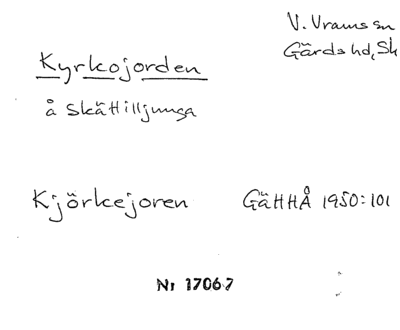 V. Vrams sn
Gärds hd, Sk
Kyrkojorden
å Skättilljunga
Kjörkejoren GäHHÅ 1950:101
Nr 17067